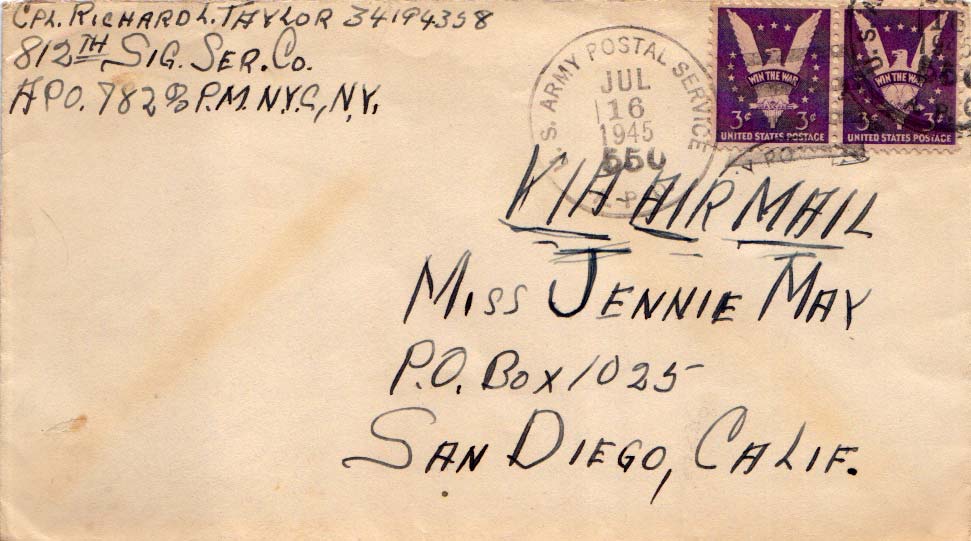 CPL. RICHARD L. TAYLOR 34194358
812TH SIG. SER. CO.
APO. 782 % P.M. N.Y.C, N.Y.
U.S. ARMY POSTAL SERVICE
JUL
16
1945
550
WIN THE WAR
3¢ 3¢
UNITED STATES POSTAGE
WIN THE WAR
3¢ 3¢
UNITED STATES POSTAGE
VIA AIR MAIL
MISS JENNIE MAY
P.O. BOX 1025
SAN DIEGO, CALIF.